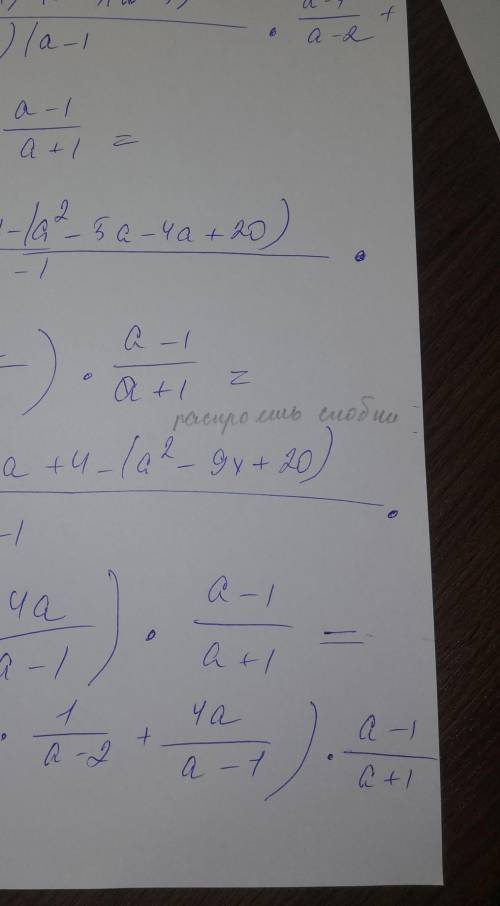 )(a-1 · a-2 +
a-1 / a+1 =
-(a² - 5a - 4a + 20) / -1 ·
) · a-1 / a+1 =
скобки
a + 4 - (a² - 9x + 20) / -1 ·
4a / a-1 ) · a-1 / a+1 =
· 1 / a-2 + 4a / a-1 ) · a-1 / a+1